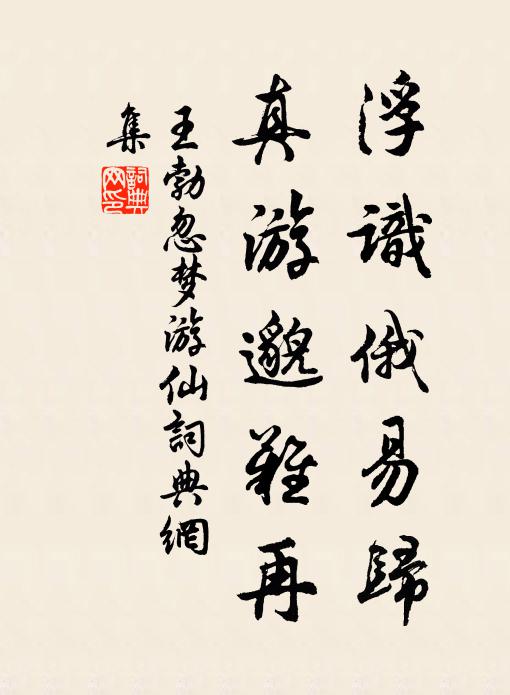 浮識俄易歸
真游邈難再
王勃忽梦游仙詞典網
集
詞典网印